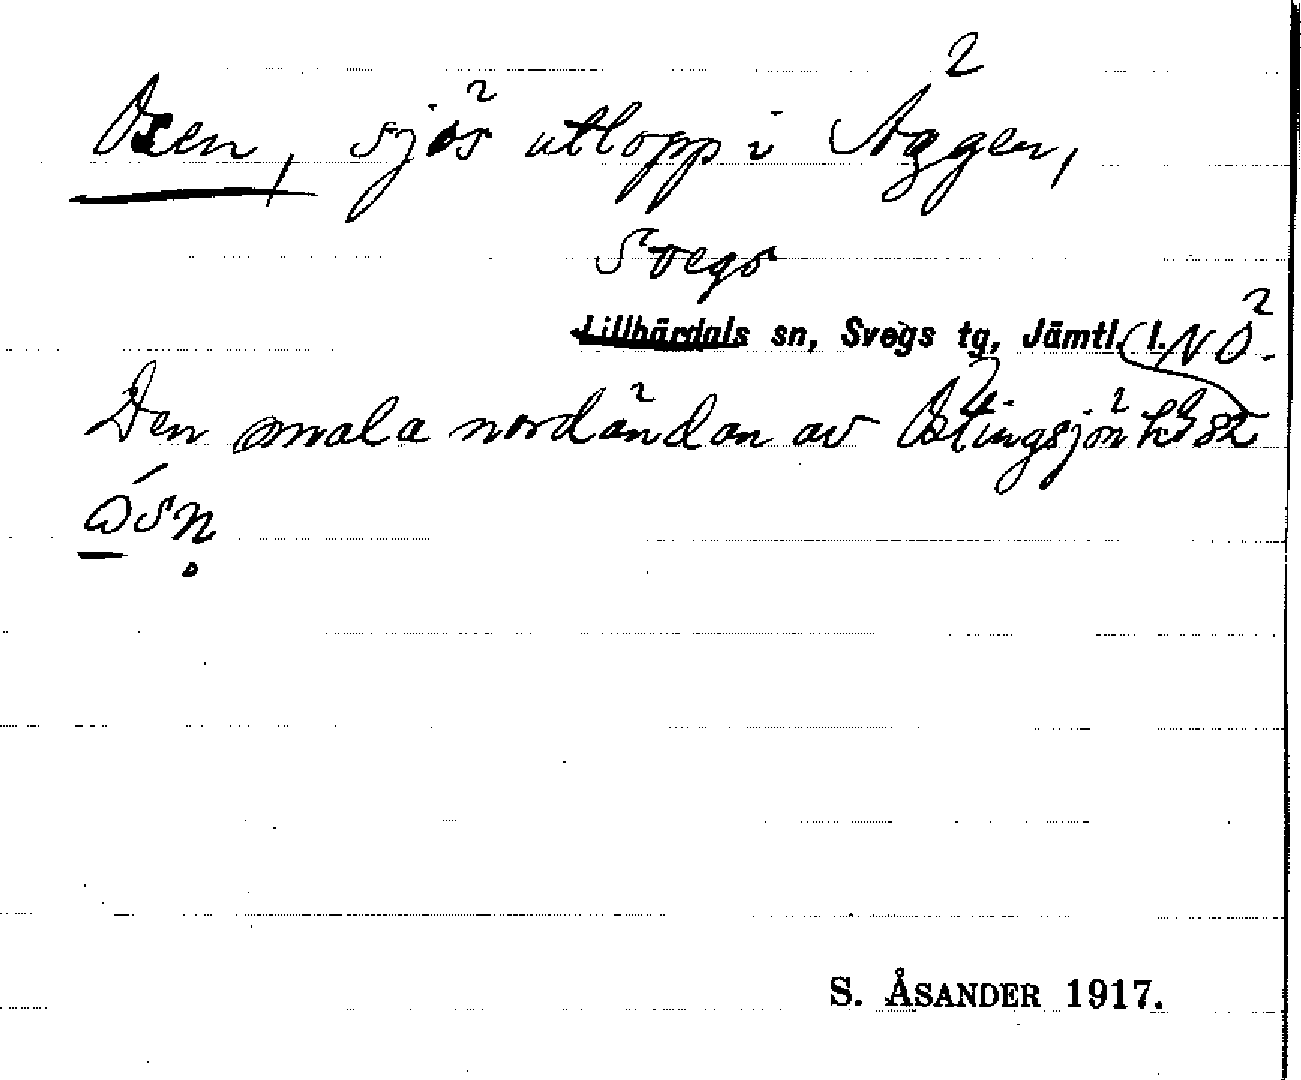 Osen, sjös utlopp i Äggen,
Svegs
Lillhärdals sn, Svegs tg, Jämtl. l. NÖ.
Den smala nordändan av Östingsjön
ósn̥
S. ÅSANDER 1917.